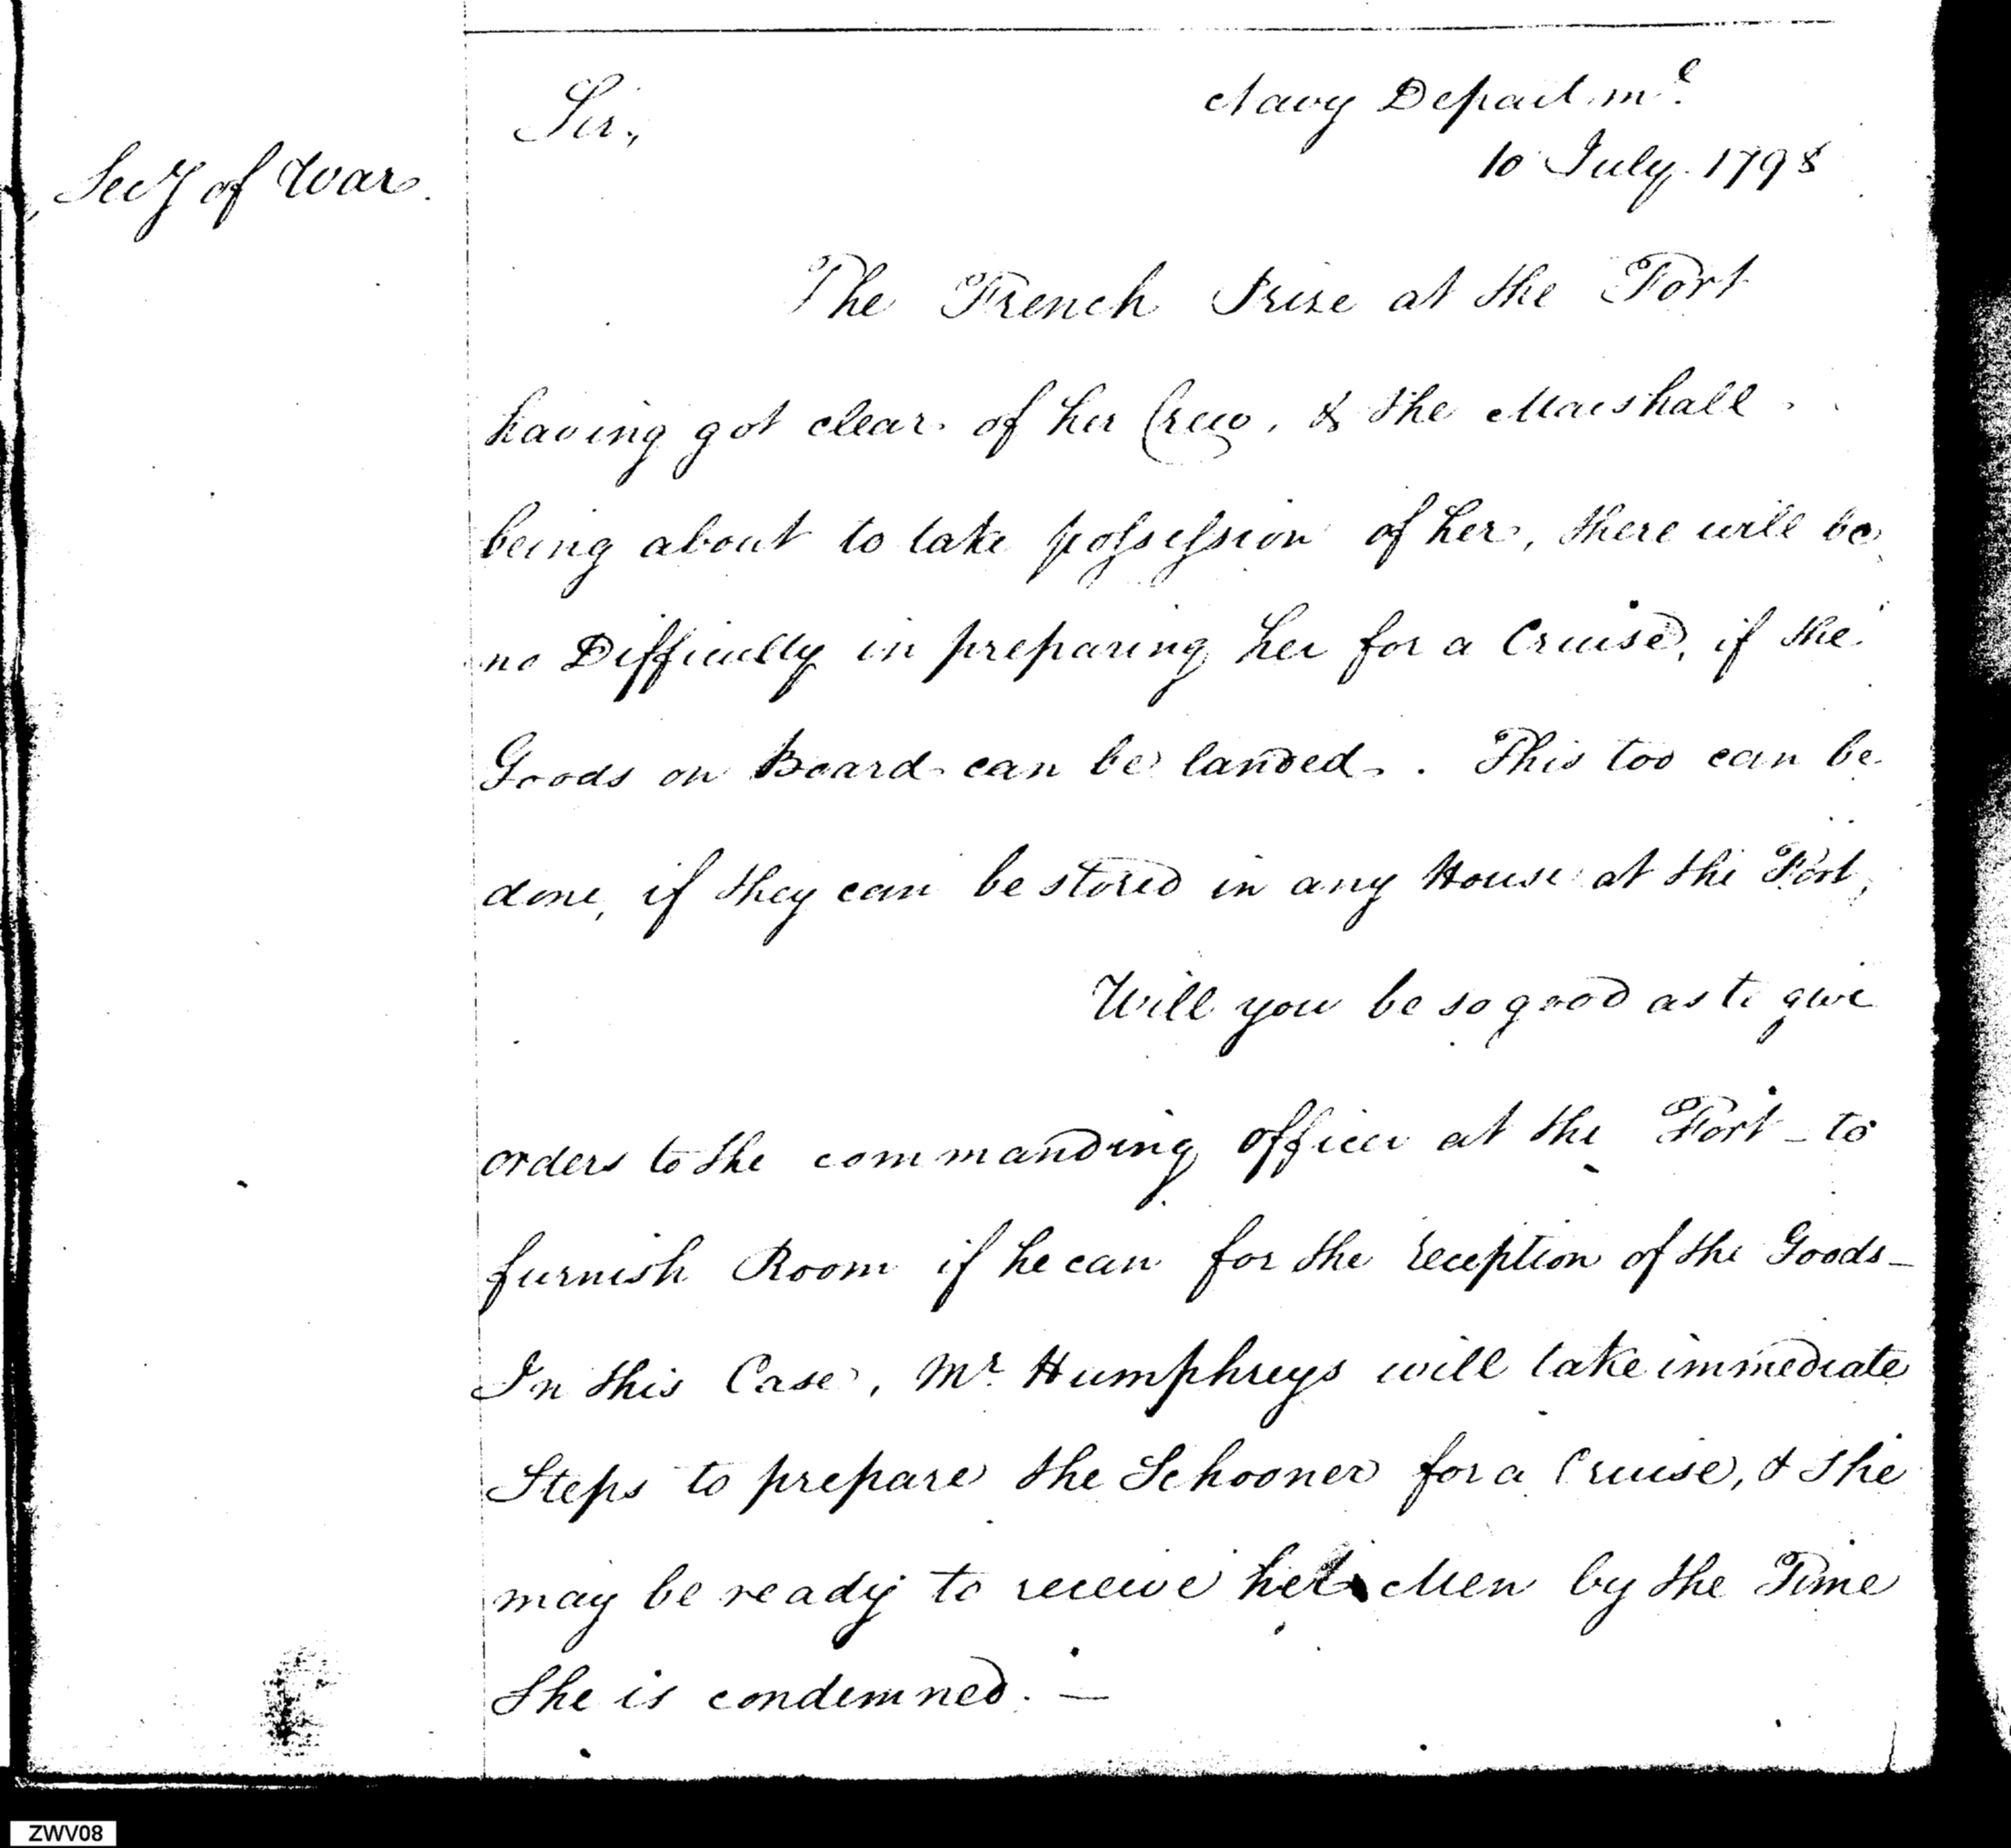 Navy Departmt
Sir,
10 July 1798
Secy of War.
The French Prize at the Fort
having got clear of her Crew, & the Marshall
being about to take possession of her, there will be
no Difficulty in preparing her for a Cruise, if the
Goods on Board can be landed. This too can be
done, if they can be stored in any House at the Fort,
Will you be so good as to give
orders to the commanding officer at the Fort - to
furnish Room if he can for the reception of the Goods -
In this Case, Mr Humphreys will take immediate
Steps to prepare the Schooner for a Cruise, & She
may be ready to receive her Men by the Time
She is condemned. -
ZWV08